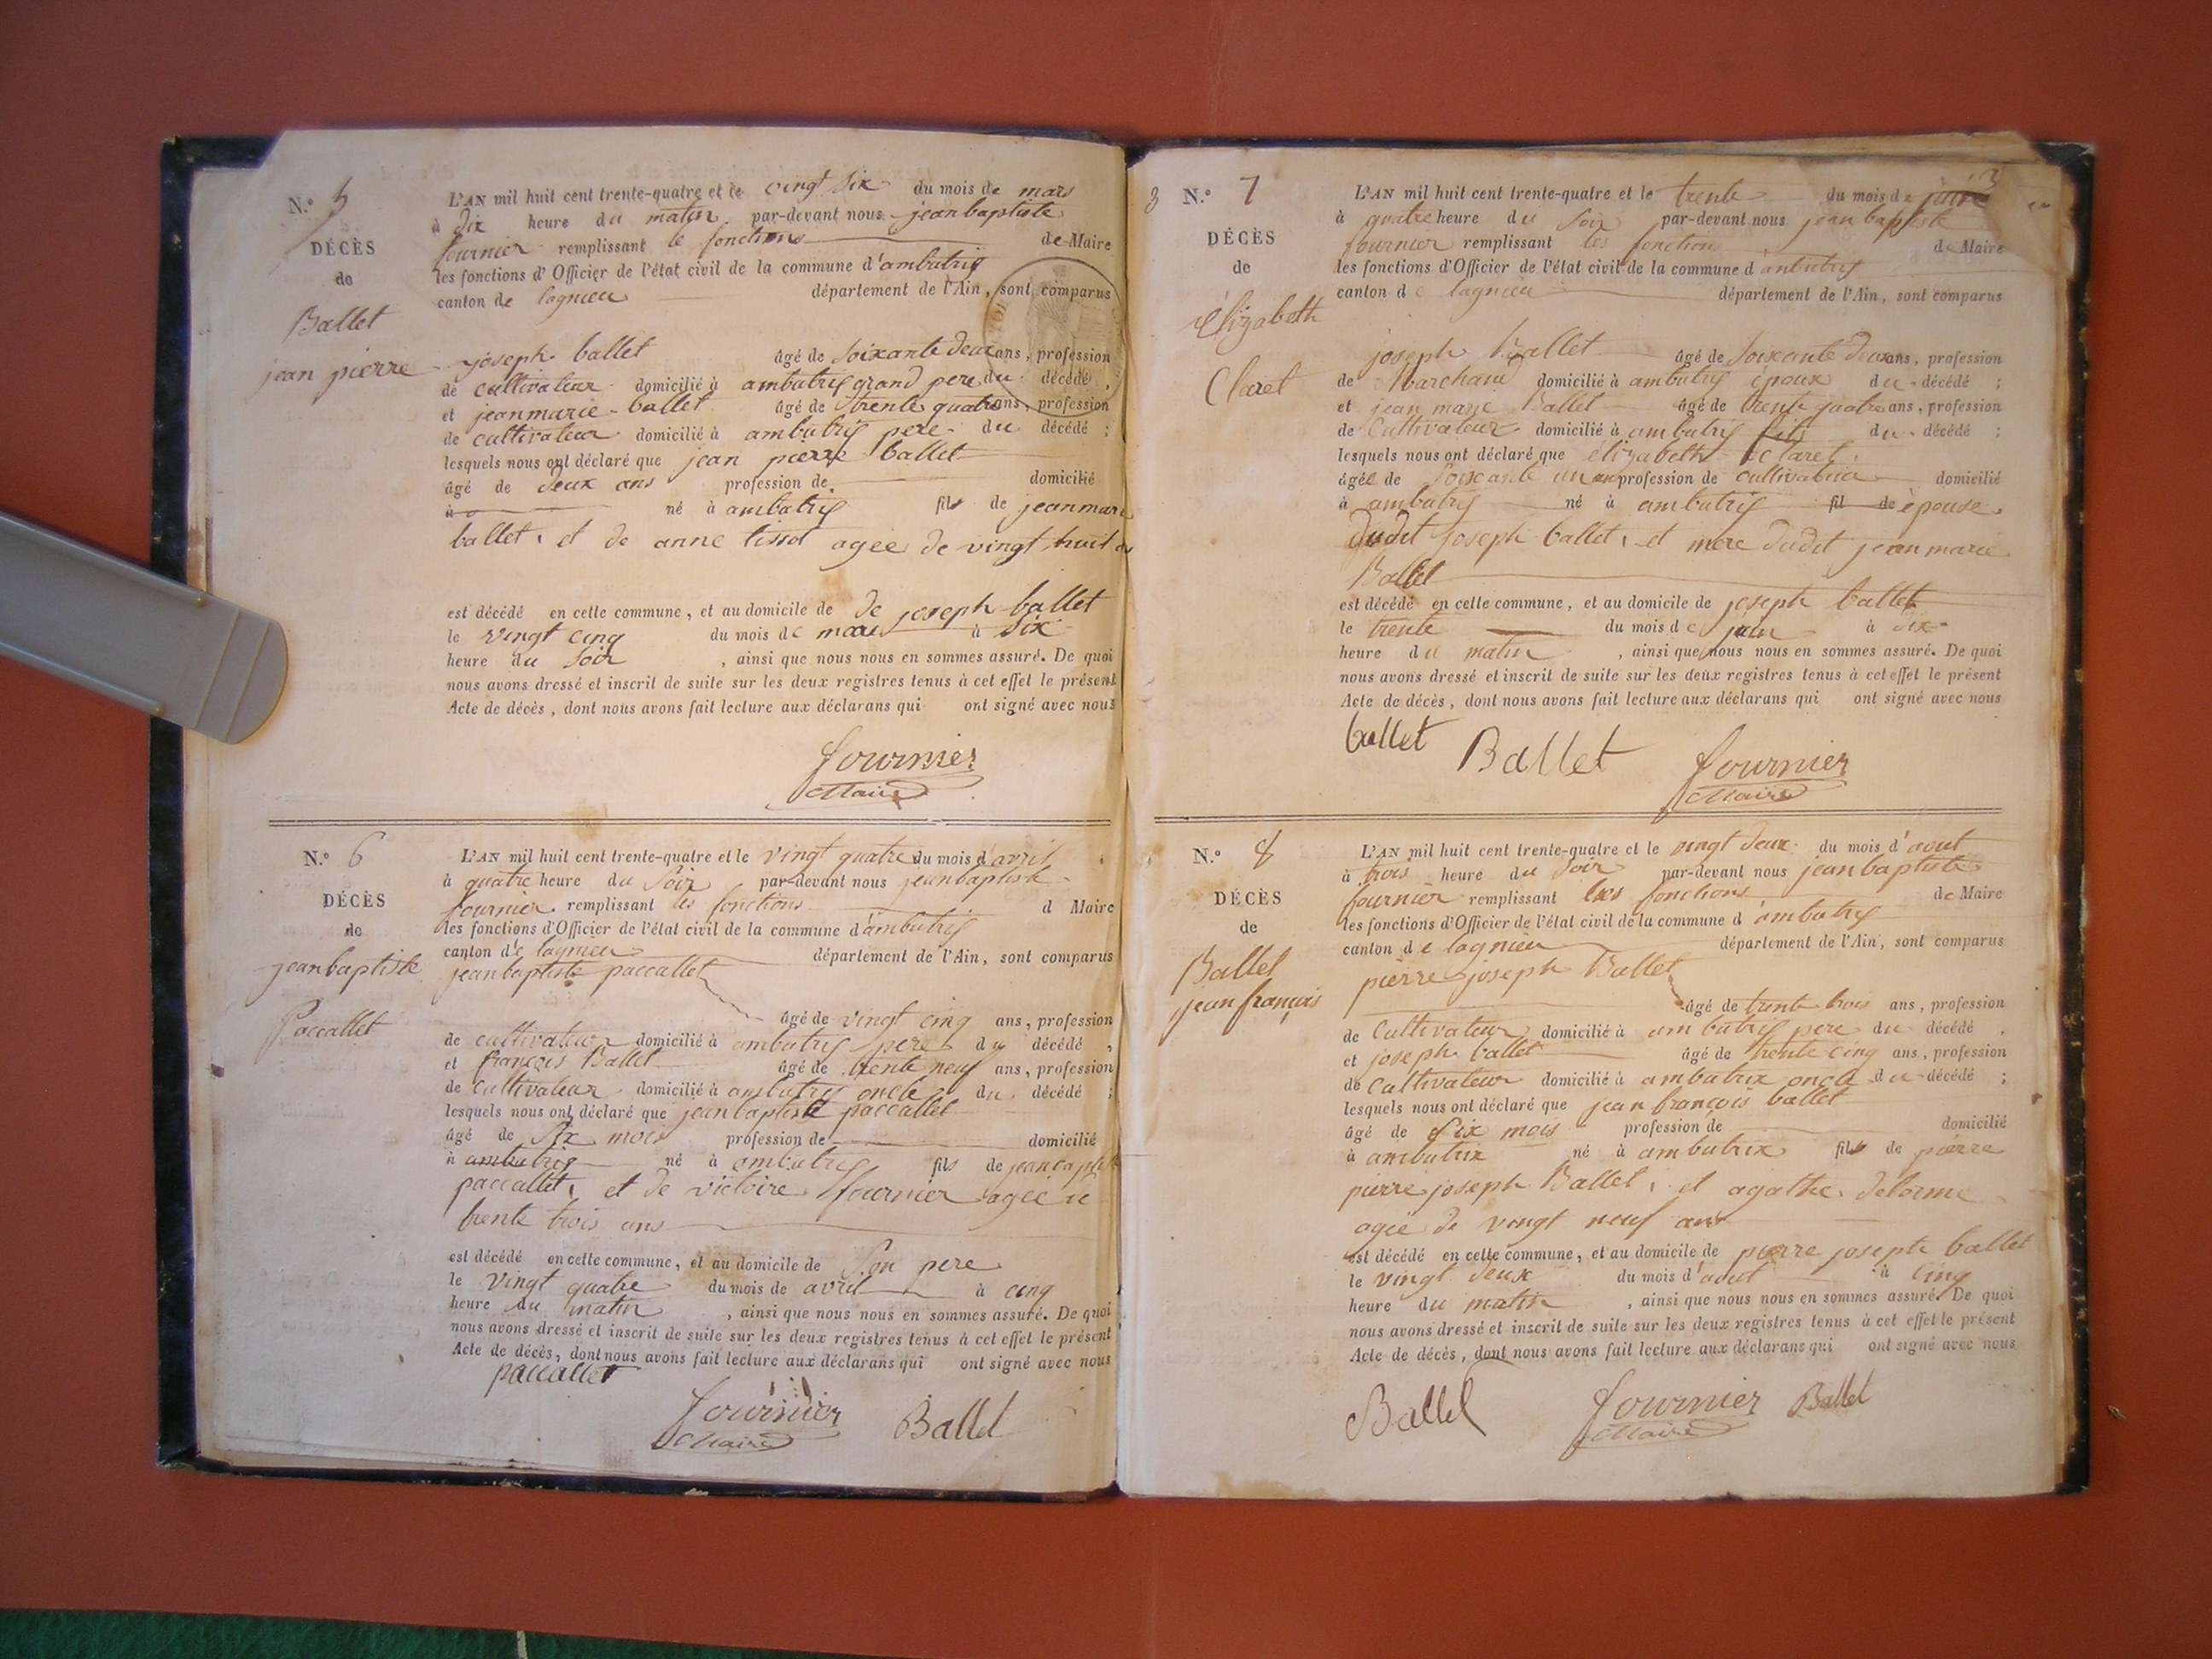 N.° 5
DÉCÈS
de
Ballet
jean pierre
L'AN mil huit cent trente-quatre et le vingt six du mois de mars
à dix heure du matin par-devant nous jean baptiste
fournier remplissant le fonctions de Maire
les fonctions d'Officier de l'état civil de la commune d'ambutrix
canton de lagnieu département de l'Ain, sont comparus
joseph ballet âgé de soixante deux ans, profession
de cultivateur domicilié à ambutrix grand pere du décédé,
et jean marie ballet âgé de trente quatre ans, profession
de cultivateur domicilié à ambutrix pere du décédé;
lesquels nous ont déclaré que jean pierre ballet
âgé de deux ans profession de domicilié
à né à ambutrix fils de jean marie
ballet, et de anne tissot agée de vingt huit
est décédé en cette commune, et au domicile de de joseph ballet
le vingt cinq du mois de mars à six
heure du soir, ainsi que nous nous en sommes assuré. De quoi
nous avons dressé et inscrit de suite sur les deux registres tenus à cet effet le présent
Acte de décès, dont nous avons fait lecture aux déclarans qui ont signé avec nous
fournier
Maire
N.° 6
DÉCÈS
de
jean baptiste
Paccallet
L'AN mil huit cent trente-quatre et le vingt quatre du mois d'avril
à quatre heure du soir par-devant nous jean baptiste
fournier remplissant les fonctions d Maire
les fonctions d'Officier de l'état civil de la commune d'ambutrix
canton de lagnieu département de l'Ain, sont comparus
jean baptiste paccallet
âgé de vingt cinq ans, profession
de cultivateur domicilié à ambutrix pere du décédé,
et françois Ballet âgé de trente neuf ans, profession
de cultivateur domicilié à ambutrix oncle du décédé;
lesquels nous ont déclaré que jean baptiste paccallet
âgé de six mois profession de domicilié
à ambutrix né à ambutrix fils de jean baptiste
paccallet, et de victoire fournier agée de
trente trois ans
est décédé en cette commune, et au domicile de son pere
le vingt quatre du mois de avril à cinq
heure du matin, ainsi que nous nous en sommes assuré. De quoi
nous avons dressé et inscrit de suite sur les deux registres tenus à cet effet le présent
Acte de décès, dont nous avons fait lecture aux déclarans qui ont signé avec nous
paccallet
fournier
Maire
Ballet
3
N.° 7
DÉCÈS
de
élizabeth
Claret
L'AN mil huit cent trente-quatre et le trente du mois de juin
à quatre heure du soir par-devant nous jean baptiste
fournier remplissant les fonction de Maire
les fonctions d'Officier de l'état civil de la commune d'ambutrix
canton de lagnieu département de l'Ain, sont comparus
joseph Ballet âgé de soixante deux ans, profession
de Marchand domicilié à ambutrix époux du décédé;
et jean marie Ballet âgé de trente quatre ans, profession
de Cultivateur domicilié à ambutrix fils du décédé;
lesquels nous ont déclaré que élizabeth Claret
âgée de soixante un an profession de domicilié
à ambutrix né à ambutrix fil de épouse
dudit joseph ballet, et mere dudit jean marie
Ballet
est décédé en cette commune, et au domicile de joseph ballet
le trente du mois de juin à six
heure du matin, ainsi que nous nous en sommes assuré. De quoi
nous avons dressé et inscrit de suite sur les deux registres tenus à cet effet le présent
Acte de décès, dont nous avons fait lecture aux déclarans qui ont signé avec nous
ballet Ballet fournier
Maire
N.° 8
DÉCÈS
de
Ballet
jean françois
L'AN mil huit cent trente-quatre et le vingt deux du mois d'aout
à trois heure du soir par-devant nous jean baptiste
fournier remplissant les fonctions de Maire
les fonctions d'Officier de l'état civil de la commune d'ambutrix
canton de lagnieu département de l'Ain, sont comparus
pierre joseph Ballet
âgé de trente trois ans, profession
de Cultivateur domicilié à ambutrix pere du décédé,
et joseph ballet âgé de trente cinq ans, profession
de Cultivateur domicilié à ambutrix oncle du décédé;
lesquels nous ont déclaré que jean françois ballet
âgé de six mois profession de domicilié
à ambutrix né à ambutrix fils de pierre
pierre joseph Ballet, et agathe delorme
agée de vingt neuf ans
est décédé en cette commune, et au domicile de pierre joseph ballet
le vingt deux du mois d'aout à cinq
heure du matin, ainsi que nous nous en sommes assuré. De quoi
nous avons dressé et inscrit de suite sur les deux registres tenus à cet effet le présent
Acte de décès, dont nous avons fait lecture aux déclarans qui ont signé avec nous
Ballet fournier Ballet
Maire